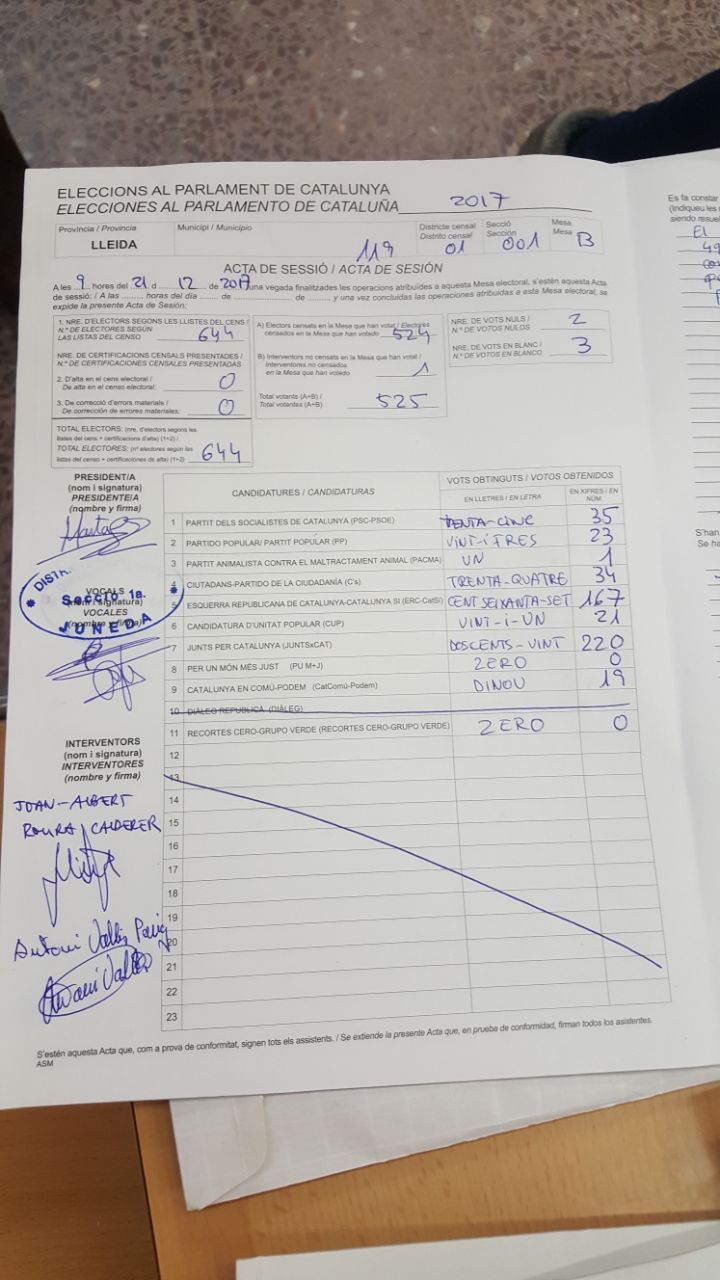 ELECCIONS AL PARLAMENT DE CATALUNYA
ELECCIONES AL PARLAMENTO DE CATALUÑA 2017
Província / Provincia
LLEIDA
Municipi / Municipio
119
Districte censal
Distrito censal
01
Secció
Sección
001
Mesa
Mesa
B
ACTA DE SESSIÓ / ACTA DE SESIÓN
A les 9 hores del 21 d 12 de 2017 una vegada finalitzades les operacions atribuïdes a aquesta Mesa electoral, s'estén aquesta Acta
de sessió: / A las ........ horas del día ........ de ........ de ........, y una vez concluidas las operaciones atribuidas a esta Mesa electoral, se
expide la presente Acta de Sesión:
1. NRE. D'ELECTORS SEGONS LES LLISTES DEL CENS /
N.º DE ELECTORES SEGÚN
LAS LISTAS DEL CENSO 644
NRE. DE CERTIFICACIONS CENSALS PRESENTADES /
N.º DE CERTIFICACIONES CENSALES PRESENTADAS
2. D'alta en el cens electoral /
De alta en el censo electoral: 0
3. De correcció d'errors materials /
De corrección de errores materiales: 0
TOTAL ELECTORS: (nre. d'electors segons les
llistes del cens + certificacions d'alta) (1+2) /
TOTAL ELECTORES: (nº electores según las
listas del censo + certificaciones de alta) (1+2) 644
A) Electors censats en la Mesa que han votat / Electores
censados en la Mesa que han votado 524
B) Interventors no censats en la Mesa que han votat /
Interventores no censados
en la Mesa que han votado 1
Total votants (A+B) /
Total votantes (A+B) 525
NRE. DE VOTS NULS /
N.º DE VOTOS NULOS 2
NRE. DE VOTS EN BLANC /
N.º DE VOTOS EN BLANCO 3
PRESIDENT/A
(nom i signatura)
PRESIDENTE/A
(nombre y firma)
Secció 1a.
JUNEDA
VOCALS
(nom i signatura)
VOCALES
(nombre y firma)
INTERVENTORS
(nom i signatura)
INTERVENTORES
(nombre y firma)
JOAN-ALBERT
ROURA CALDERER
Antoni Vallés Puig
CANDIDATURES / CANDIDATURAS
VOTS OBTINGUTS / VOTOS OBTENIDOS
EN LLETRES / EN LETRA
EN XIFRES / EN NÚM.
1 PARTIT DELS SOCIALISTES DE CATALUNYA (PSC-PSOE) 35
2 PARTIDO POPULAR/ PARTIT POPULAR (PP) VINT-I-TRES 23
3 PARTIT ANIMALISTA CONTRA EL MALTRACTAMENT ANIMAL (PACMA) UN 1
4 CIUTADANS-PARTIDO DE LA CIUDADANÍA (C's) TRENTA-QUATRE 34
5 ESQUERRA REPUBLICANA DE CATALUNYA-CATALUNYA SÍ (ERC-CatSí) CENT SEIXANTA-SET 167
6 CANDIDATURA D'UNITAT POPULAR (CUP) VINT-I-UN 21
7 JUNTS PER CATALUNYA (JUNTSxCAT) DOSCENTS-VINT 220
8 PER UN MÓN MÉS JUST (PUM+J) ZERO 0
9 CATALUNYA EN COMÚ-PODEM (CatComú-Podem) DINOU 19
10 DIÀLEG REPUBLICÀ (DIÀLEG)
11 RECORTES CERO-GRUPO VERDE (RECORTES CERO-GRUPO VERDE) ZERO 0
12
13
14
15
16
17
18
19
20
21
22
23
S'estén aquesta Acta que, com a prova de conformitat, signen tots els assistents. / Se extiende la presente Acta que, en prueba de conformidad, firman todos los asistentes.
ASM
Es fa constar
(Indiqueu les
siendo resuel
El
S'han
Se ha